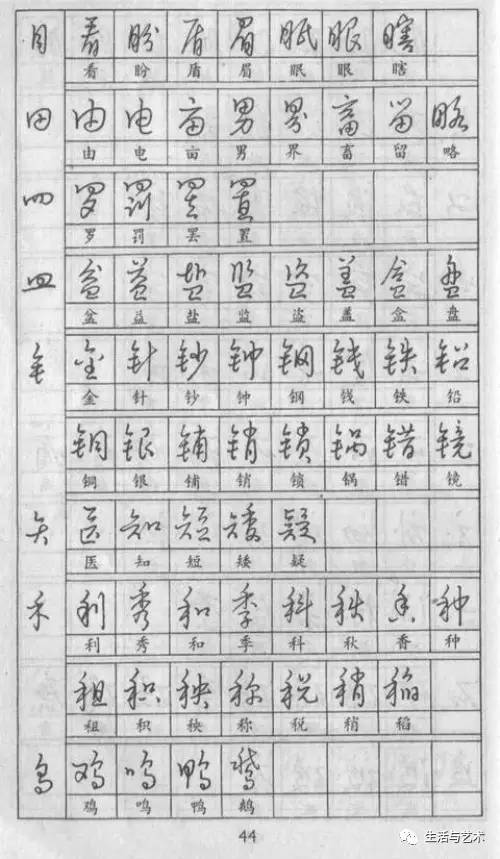 目 看 盼 盾 眉 眠 眼 瞎
看 盼 盾 眉 眠 眼 瞎
田 由 电 亩 男 界 畜 留 略
由 电 亩 男 界 畜 留 略
罒 罗 罚 罢 置
罗 罚 罢 置
皿 盆 益 盐 监 盗 盖 盒 盘
盆 益 盐 监 盗 盖 盒 盘
钅 金 针 钞 钟 钢 钱 铁 铅
金 针 钞 钟 钢 钱 铁 铅
铜 银 铺 销 锁 锅 错 镜
铜 银 铺 销 锁 锅 错 镜
矢 医 知 短 矮 疑
医 知 短 矮 疑
禾 利 秀 和 季 科 秋 香 种
利 秀 和 季 科 秋 香 种
租 积 秧 称 税 稍 稻
租 积 秧 称 税 稍 稻
鸟 鸡 鸣 鸭 鹅
鸡 鸣 鸭 鹅
44
生活与艺术